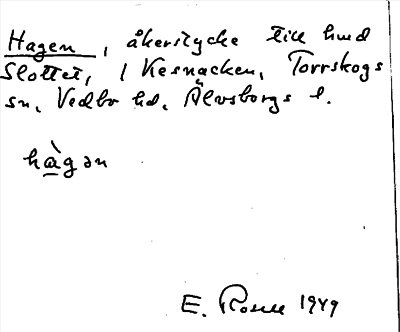 Hagen, åkerstycke till hmd
Slottet, 1 Kesnacken, Torrskogs
sn, Vedbo hd, Älvsborgs l.
hàgən
E. Rosell 1949